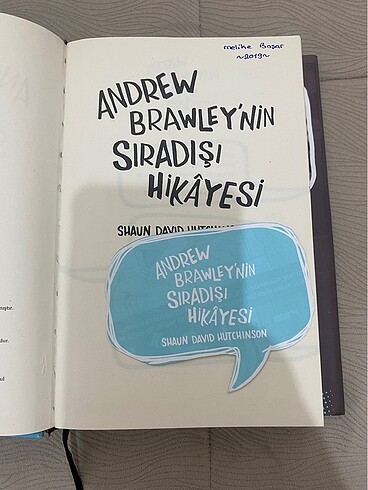 melike Başar
~2019~
ANDREW
BRAWLEY'NİN
SIRADIŞI
HİKÂYESİ
SHAUN DAVID
ANDREW
BRAWLEY'NİN
SIRADIŞI
HİKÂYESİ
SHAUN DAVID HUTCHINSON